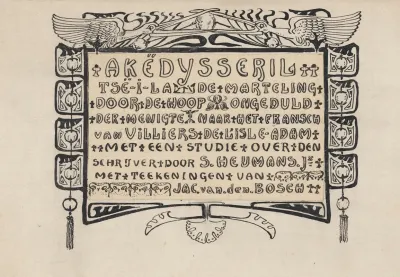 AKËDYSSERIL
TSË-I-LA EN DE MARTELING
DOOR DE HOOP ONGEDULD
DER MENIGTE NAAR HET FRANSCH
VAN VILLIERS DE L'ISLE-ADAM
MET EEN STUDIE OVER DEN
SCHRIJVER DOOR S. HEUMANS. Jr
MET TEEKENINGEN VAN
JAC. van. den. BOSCH